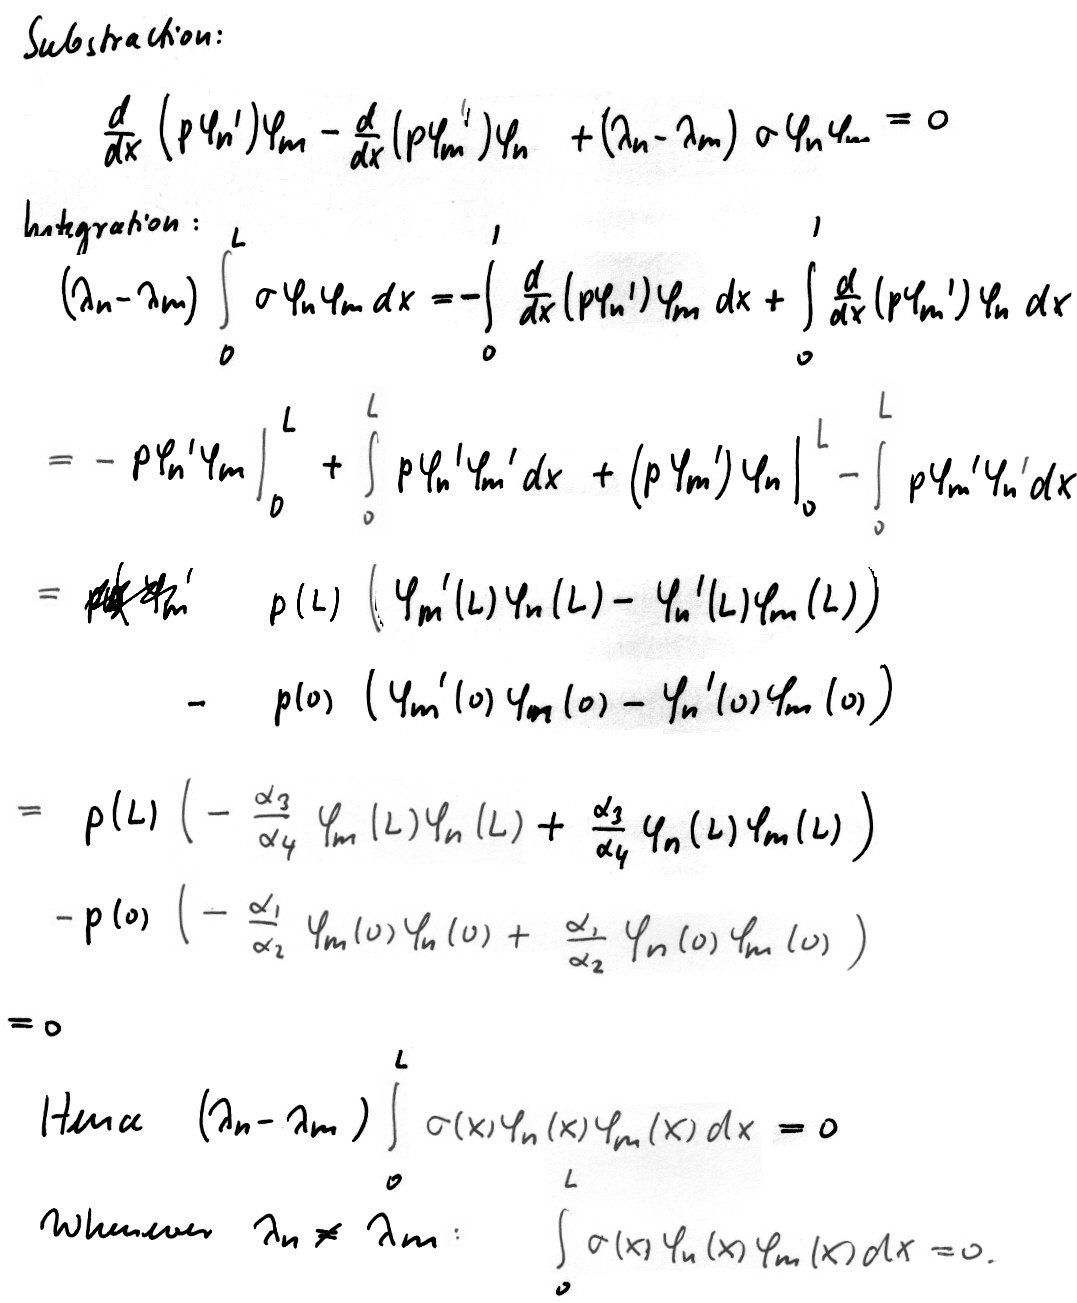 Substraction:
d/dx (pφn')φm − d/dx (pφm')φn + (λn − λm) σ φn φm = 0
Integration:
(λn − λm) ∫₀ᴸ σ φn φm dx = −∫₀¹ d/dx (pφn')φm dx + ∫₀¹ d/dx (pφm')φn dx
= − pφn'φm |₀ᴸ + ∫₀ᴸ pφn'φm' dx + (pφm')φn |₀ᴸ − ∫₀ᴸ pφm'φn' dx
= p(L) (φm'(L)φn(L) − φn'(L)φm(L))
− p(0) (φm'(0)φm(0) − φn'(0)φm(0))
= p(L) (− α3/α4 φm(L)φn(L) + α3/α4 φn(L)φm(L))
− p(0) (− α1/α2 φm(0)φn(0) + α1/α2 φn(0)φm(0))
= 0
Hence (λn − λm) ∫₀ᴸ σ(x)φn(x)φm(x) dx = 0
Whenever λn ≠ λm: ∫₀ᴸ σ(x)φn(x)φm(x) dx = 0.